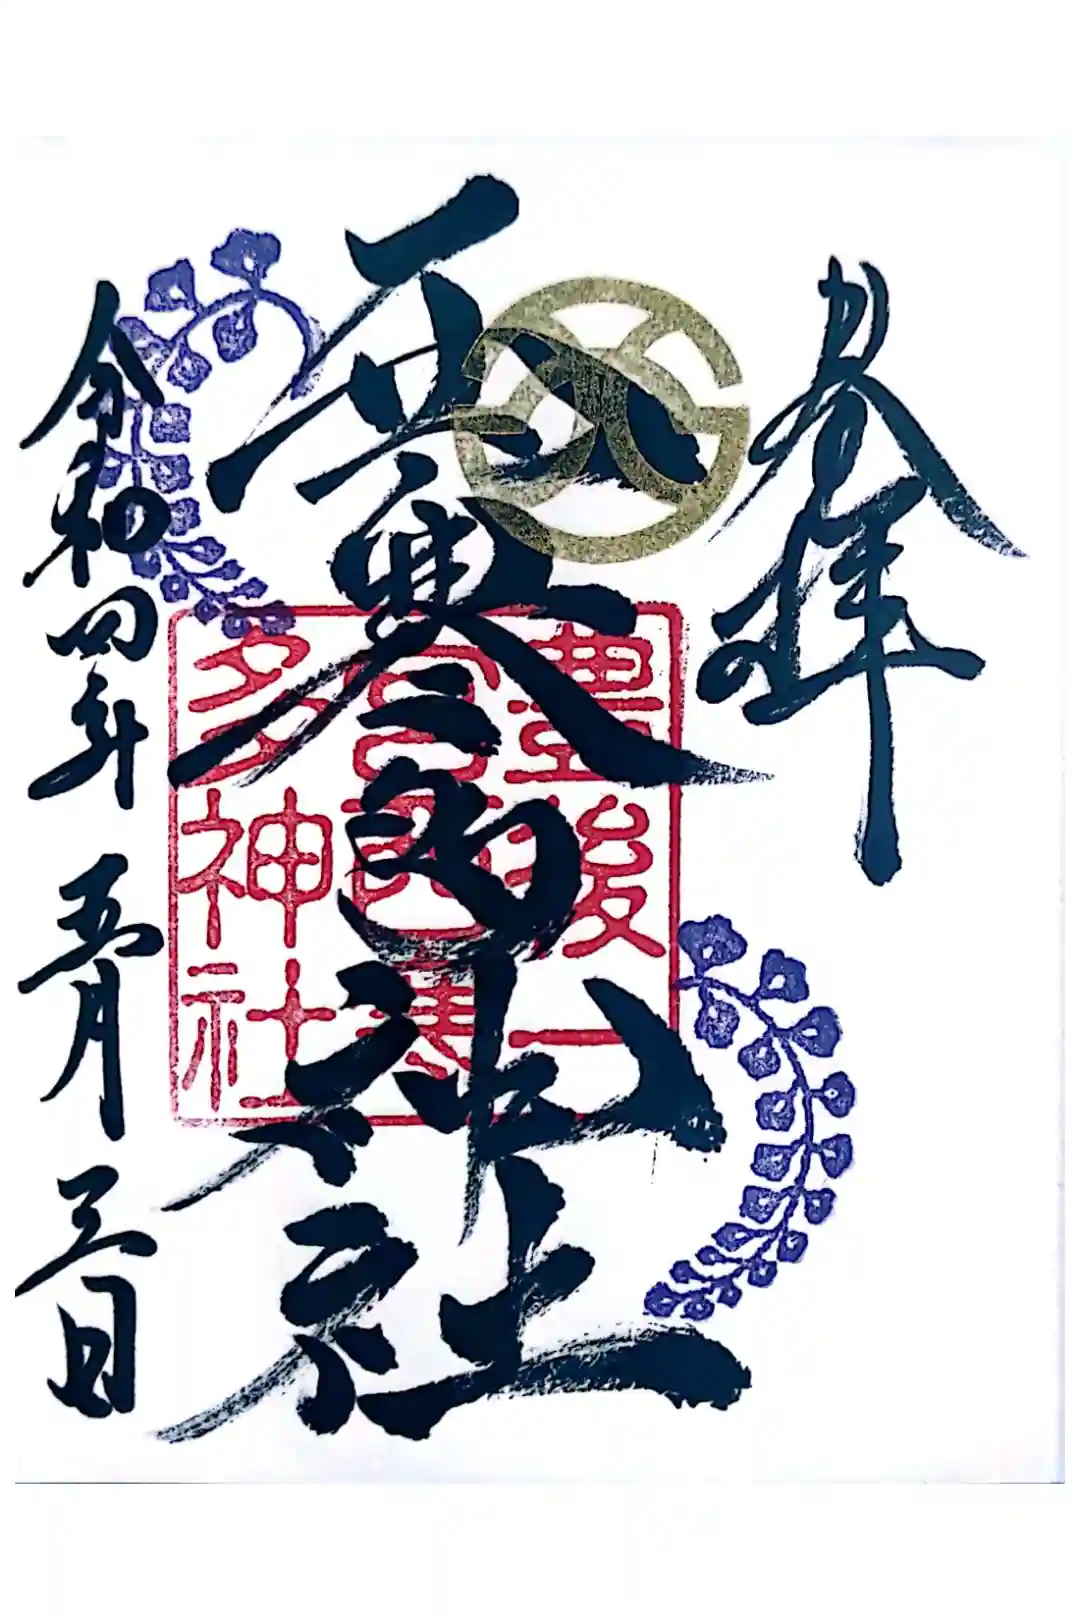 参拝
西寒多神社
豊後一
宮西寒
多神社
令和四年 五月 三日